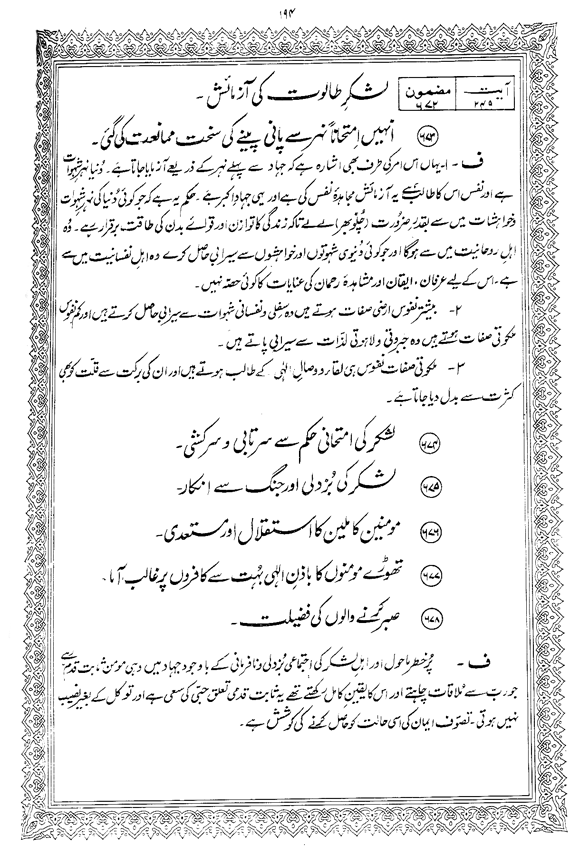 ۱۹۴
آیت
۲۴۵
مضمون
۶۷۲
لشکرِ طالوت کی آزمائش ۔
۶۷۳ انہیں امتحاناً نہر سے پانی پینے کی سخت ممانعت کی گئی۔
ف ۔ ا۔ یہاں اس امر کی طرف بھی اشارہ ہے کہ جہاد سے پہلے نہر کے ذریعے آزمایا جاتا ہے۔ دُنیا نہرِ شہوات
ہے اور نفس اس کا طالب ہے یہ آزمائش مجاہدۂ نفس کی ہے اور یہی جہادِ اکبر ہے۔ حکم یہ ہے کہ جو کوئی دُنیا کی نہرِ شہوات
و خواہشات میں سے بقدرِ ضرورت (چُلّو بھر) لے لے تاکہ زندگی کا توازن اور قوائے بدن کی طاقت برقرار رہے۔ وُہ
اہلِ روحانیت میں سے ہوگا اور جو کوئی دُنیوی شہوتوں اور خواہشوں سے سیرابی حاصل کرے وہ اہلِ نفسانیت میں سے
ہے۔ اس کے لیے عرفان، ایقان اور مشاہدۂ رحمان کی عنایات کا کوئی حصّہ نہیں۔
۲- بیشتر نفوس ارضی صفات ہوتے ہیں وہ سفلی و نفسانی شہوات سے سیرابی حاصل کرتے ہیں اور کم نفوس
ملکوتی صفات ہوتے ہیں وہ جبروتی و لاہوتی لذّات سے سیرابی پاتے ہیں ۔
۳- ملکوتی صفات نفوس ہی لقا و وصالِ الٰہی کے طالب ہوتے ہیں اور ان کی برکت سے قلّت کو بھی
کثرت سے بدل دیا جاتا ہے۔
۶۷۴ لشکر کی امتحانی حکم سے سرتابی و سرکشی۔
۶۷۵ لشکر کی بُزدلی اور جنگ سے انکار۔
۶۷۶ مومنین کاملین کا استقلال اور مستعدی۔
۶۷۷ تھوڑے مومنوں کا باذنِ الٰہی بہت سے کافروں پر غالب آنا۔
۶۷۸ صبر کرنے والوں کی فضیلت۔
ف ۔ پُر خطر ماحول اور اہلِ لشکر کی اجتماعی بُزدلی و نافرمانی کے باوجود جہاد میں وہی مومن ثابت قدم رہے
جو رب سے مُلاقات چاہتے اور اس کا یقینِ کامل رکھتے تھے یہ ثابت قدمی تعلق حبّی کی سعی ہے اور توکل کے بغیر نصیب
نہیں ہوتی۔ تصوف ایمان کی اسی حالت کو حاصل کرنے کی کوشش ہے۔